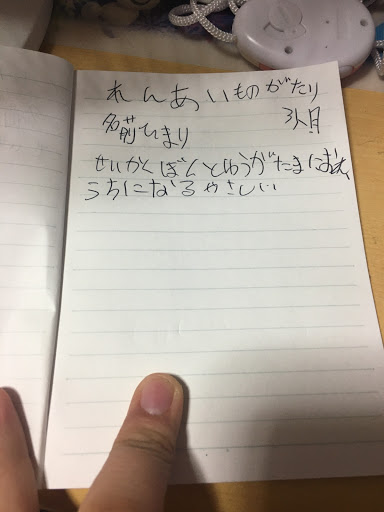 れんあいものがたり
名前ひまり
せいかくぼくとゆうがたまにおれ、
うちになるやさしい